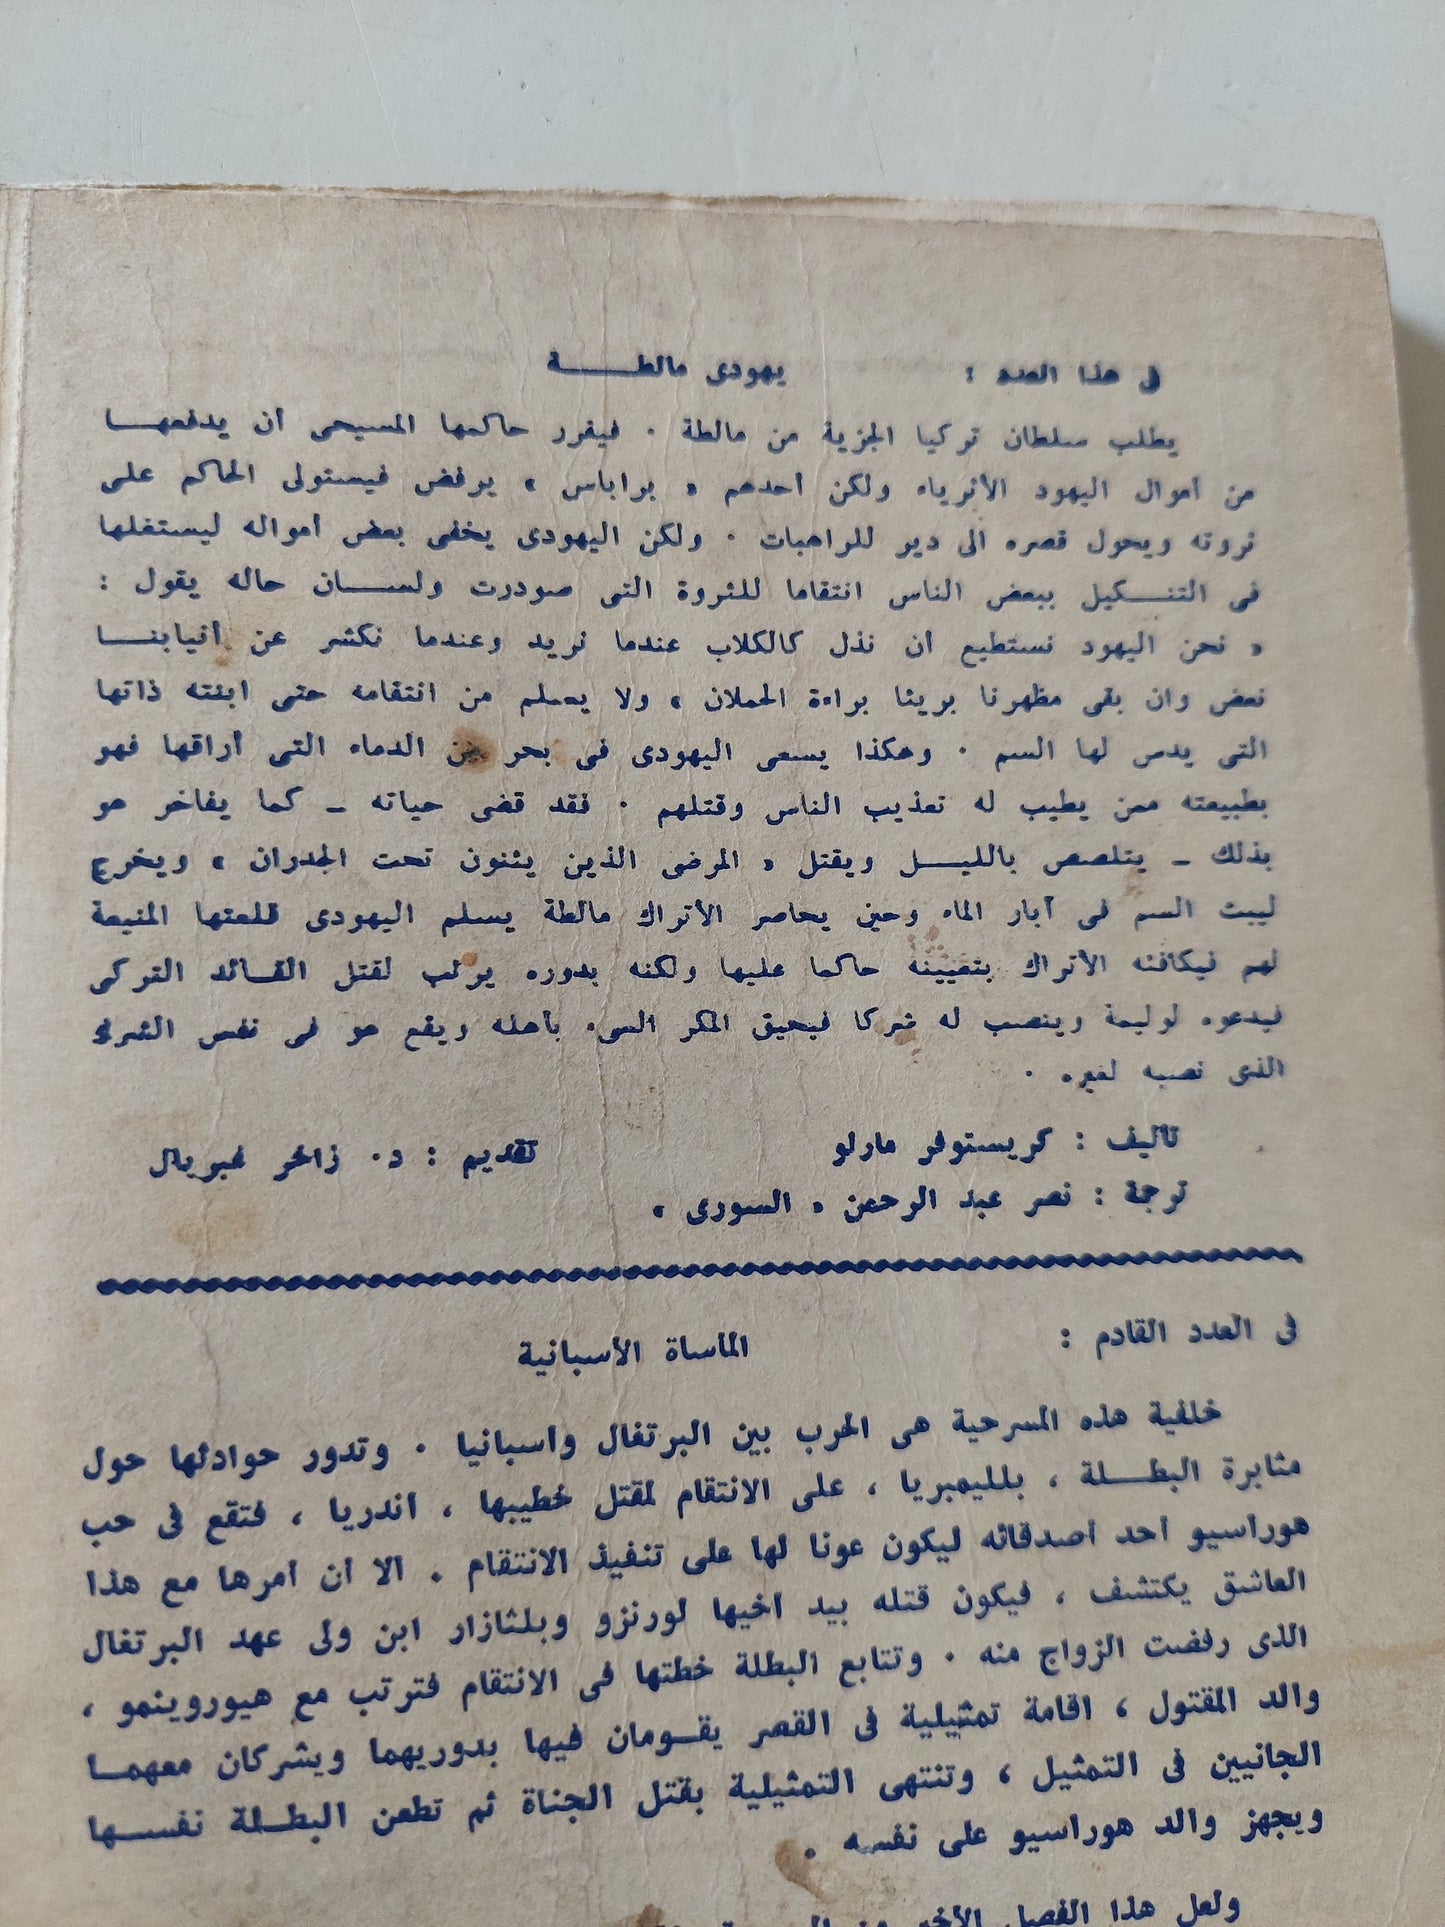 فى هذا العدد : يهودى مالطة
يطلب سلطان تركيا الجزية من مالطة . فيقرر حاكمها المسيحى أن يدفعها
من أموال اليهود الأثرياء ولكن أحدهم « براباس » يرفض فيستولى الحاكم على
ثروته ويحول قصره الى دير للراهبات . ولكن اليهودى يخفى بعض أمواله ليستغلها
فى التنكيل ببعض الناس انتقاما للثروة التى صودرت ولسان حاله يقول :
« نحن اليهود نستطيع أن نذل كالكلاب عندما نريد وعندما نكشر عن أنيابنا
نعض وان بقى مظهرنا بريئا براءة الحملان » ولا يسلم من انتقامه حتى ابنته ذاتها
التى يدس لها السم . وهكذا يسعى اليهودى فى بحر من الدماء التى أراقها فهو
بطبيعته ممن يطيب له تعذيب الناس وقتلهم . فقد قضى حياته – كما يفاخر هو
بذلك – يتلصص بالليل ويقتل « المرضى الذين يئنون تحت الجدران » ويخرج
ليبث السم فى آبار الماء وحين يحاصر الأتراك مالطة يسلم اليهودى قلعتها المنيعة
لهم فيكافئه الأتراك بتعيينه حاكما عليها ولكنه بدوره يرتب لقتل القائد التركى
فيدعوه لوليمة وينصب له شركا فيحيق المكر السىء بأهله ويقع هو فى نفس الشرك
الذى نصبه لغيره .
تأليف : كريستوفر مارلو تقديم : د. زاخر غبريال
ترجمة : نصر عبد الرحمن « السورى »
فى العدد القادم : المأساة الأسبانية
خلفية هذه المسرحية هى الحرب بين البرتغال وأسبانيا . وتدور حوادثها حول
مثابرة البطلة ، بلليمبريا ، على الانتقام لمقتل خطيبها ، أندريا ، فتقع فى حب
هوراسيو أحد أصدقائه ليكون عونا لها على تنفيذ الانتقام . الا أن أمرها مع هذا
العاشق يكتشف ، فيكون قتله بيد أخيها لورنزو وبلثازار ابن ولى عهد البرتغال
الذى رفضت الزواج منه . وتتابع البطلة خطتها فى الانتقام فترتب مع هيورونيمو ،
والد المقتول ، اقامة تمثيلية فى القصر يقومان فيها بدوريهما ويشركان معهما
الجانيين فى التمثيل ، وتنتهى التمثيلية بقتل الجناة ثم تطعن البطلة نفسها
ويجهز والد هوراسيو على نفسه .
ولعل هذا الفصل الأخير من